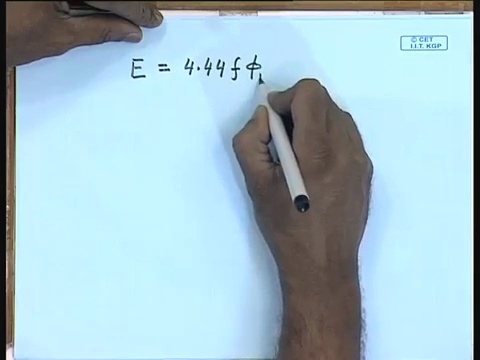 © CET
I.I.T. KGP
E = 4.44 f φ